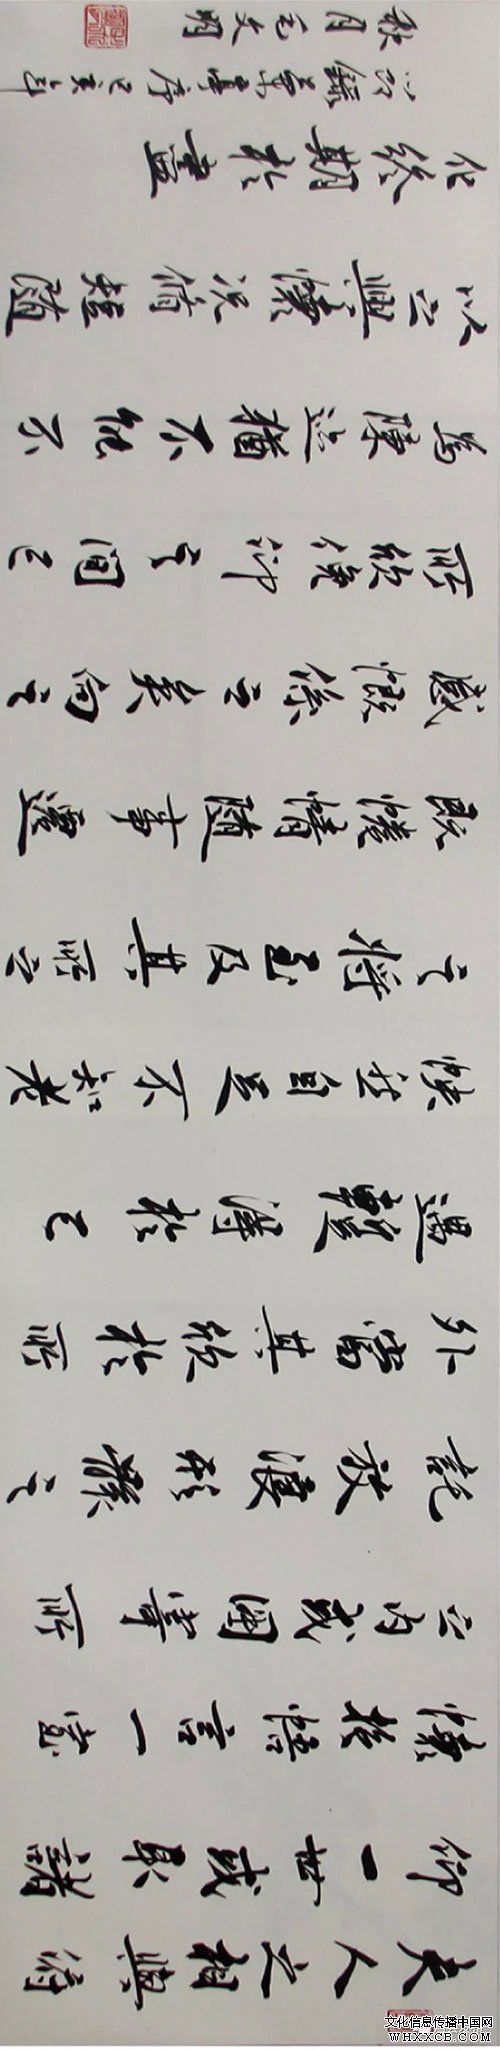 夫人之相與俯
仰一世或取諸
懷抱悟言一室
之內或因寄所
託放浪形骸之
外當其欣於所
遇蹔得於己
快然自足不知老
之將至及其所之
既惓情隨事遷
感慨係之矣向之
所欣俛仰之間已
為陳迹猶不能不
以之興懷況脩短隨
化終期於盡
節錄蘭亭序
秋月毛文明
文化信息传播中国网
WHXXCB.COM